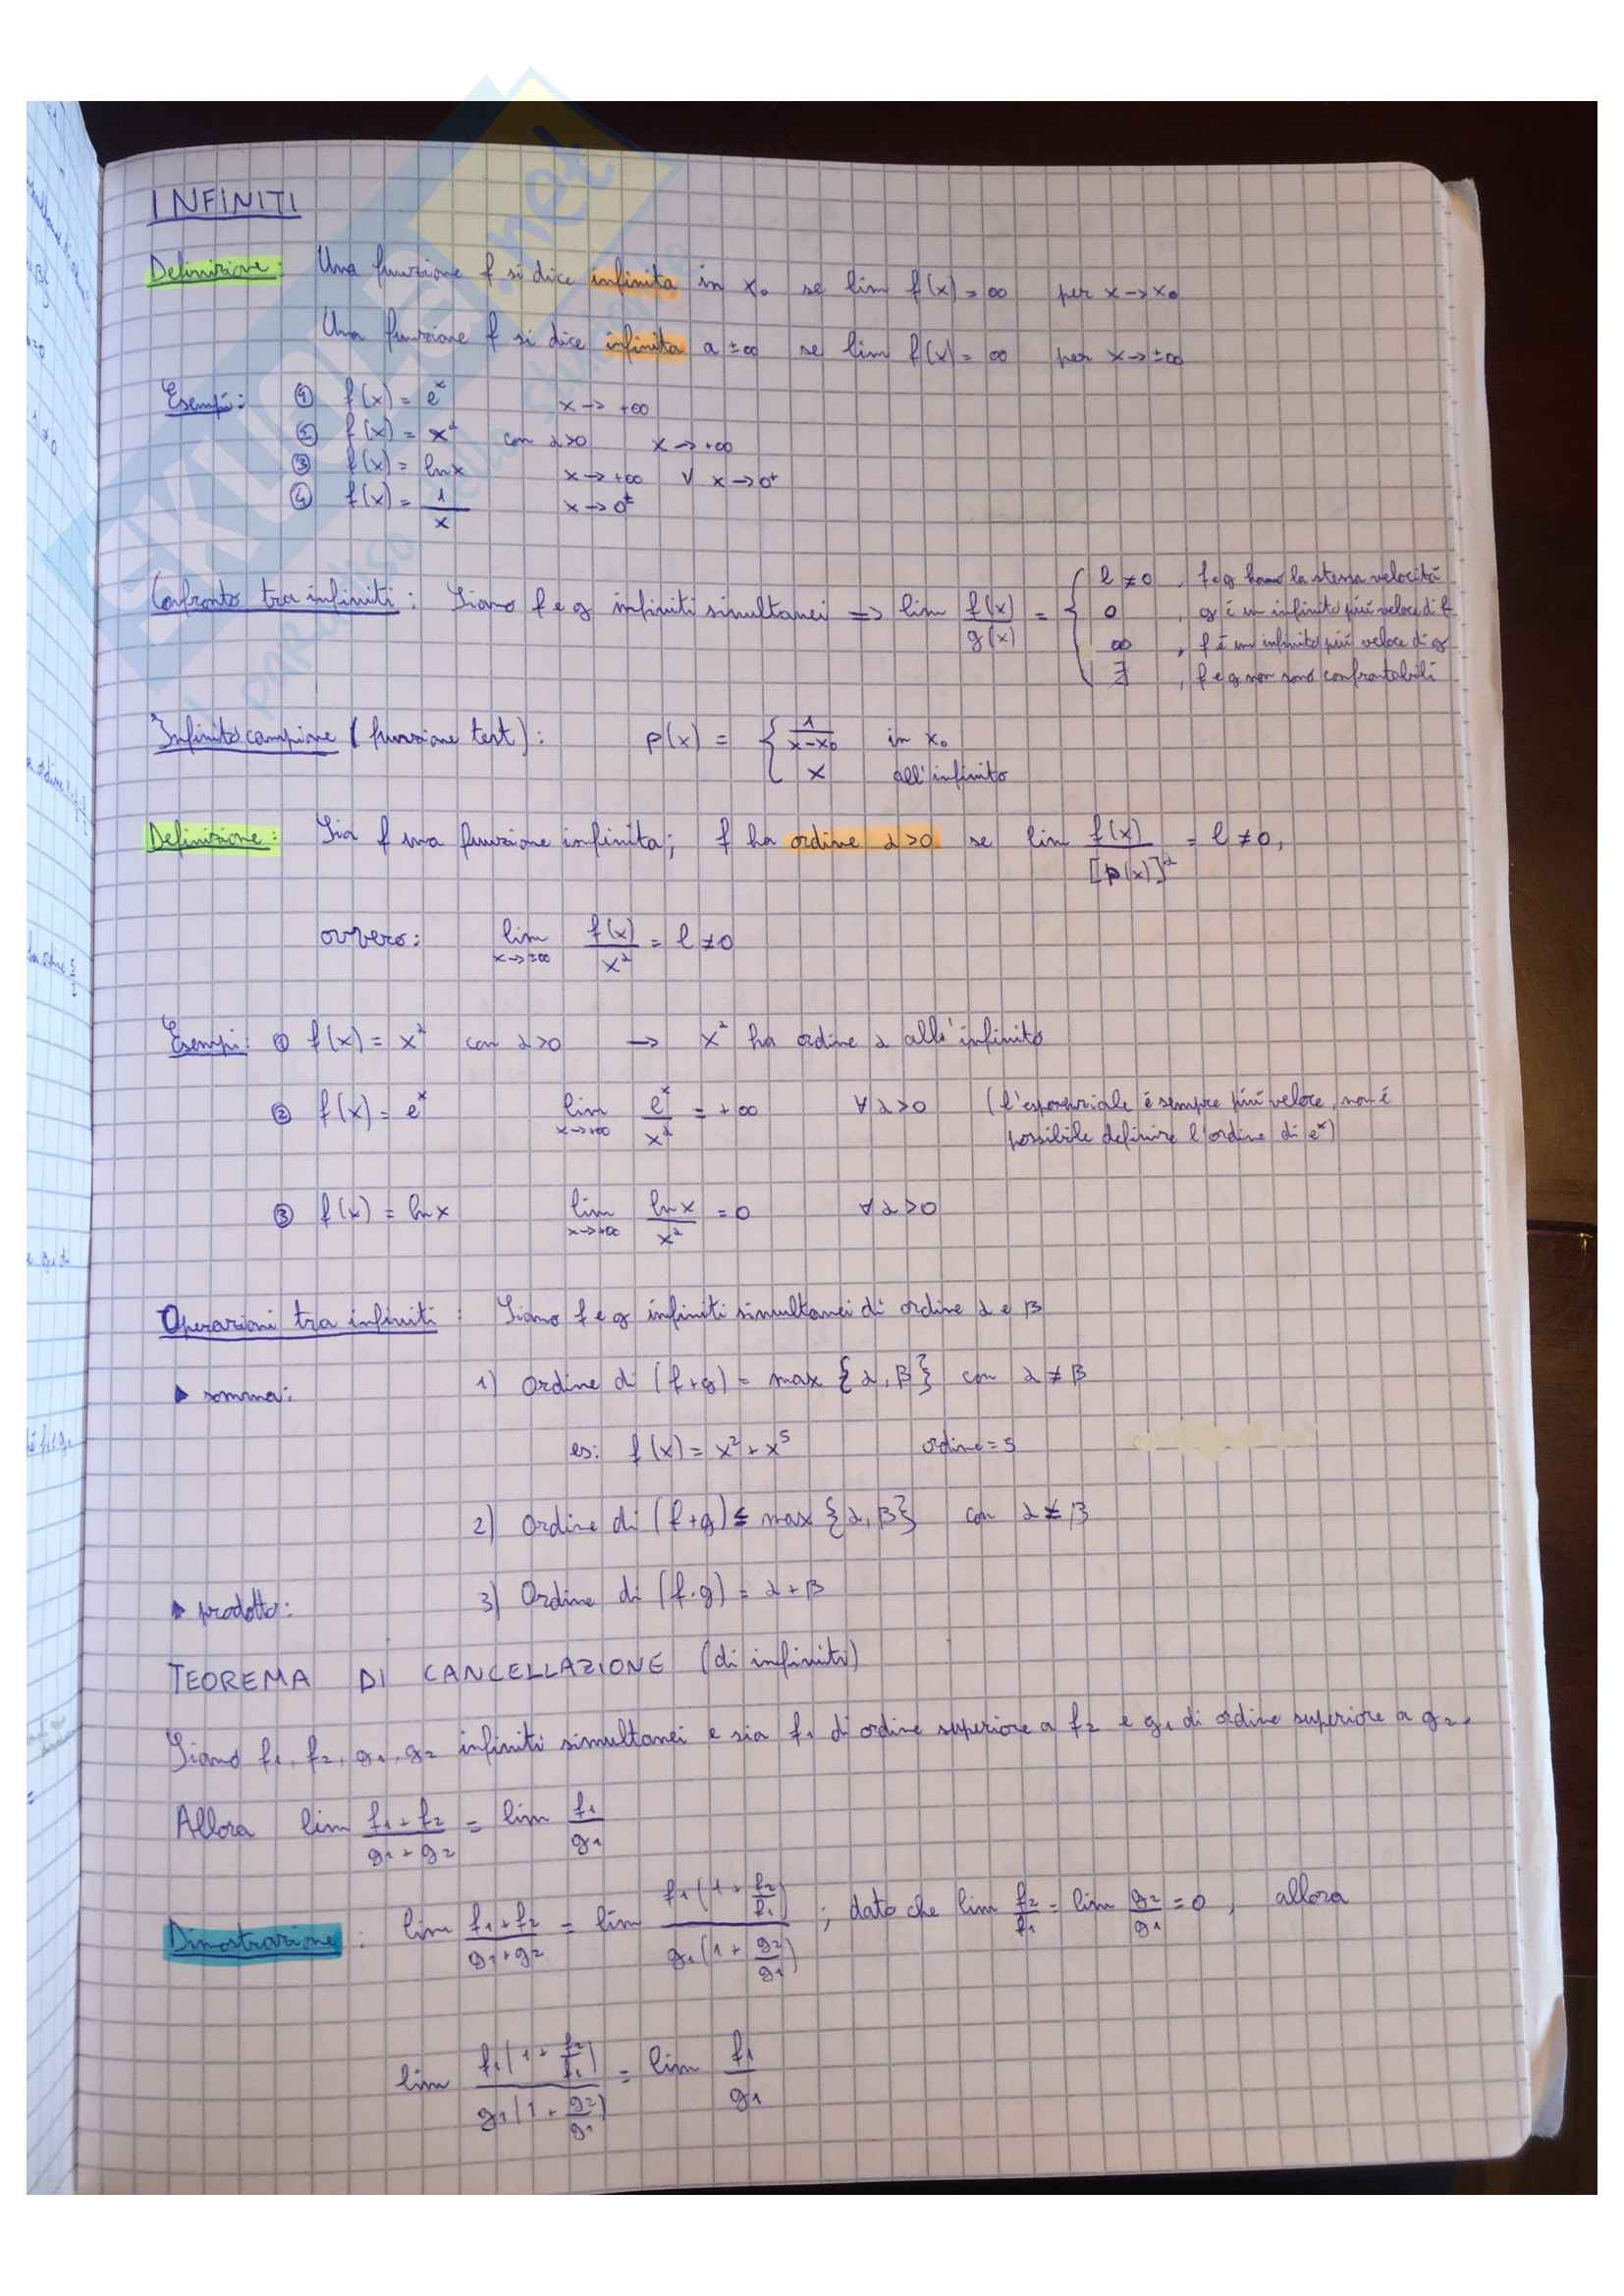 INFINITI
Definizione: Una funzione f si dice infinita in x₀ se lim f(x) = ∞ per x → x₀
Una funzione f si dice infinita a ±∞ se lim f(x) = ∞ per x → ±∞
Esempi: ① f(x) = eˣ x → +∞
② f(x) = x^α con α>0 x → +∞
③ f(x) = ln x x → +∞ ∨ x → 0⁺
④ f(x) = 1/x x → 0^±
Confronto tra infiniti: Siano f e g infiniti simultanei => lim f(x)/g(x) = { l ≠ 0, f e g hanno la stessa velocità
0, g è un infinito più veloce di f
∞, f è un infinito più veloce di g
∄, f e g non sono confrontabili
Infinito campione (funzione test): p(x) = { 1/(x-x₀) in x₀
x all'infinito
Definizione: Sia f una funzione infinita; f ha ordine α>0 se lim f(x)/[p(x)]^α = l ≠ 0,
ovvero: lim x→±∞ f(x)/x^α = l ≠ 0
Esempi: ① f(x) = x^α con α>0 → x^α ha ordine α all'infinito
② f(x) = eˣ lim x→+∞ eˣ/x^α = +∞ ∀ α>0 (l'esponenziale è sempre più veloce, non è
possibile definire l'ordine di eˣ)
③ f(x) = ln x lim x→+∞ ln x/x^α = 0 ∀ α>0
Operazioni tra infiniti: Siano f e g infiniti simultanei di ordine α e β
▶ somma: 1) Ordine di (f+g) = max {α, β} con α ≠ β
es: f(x) = x² + x⁵ ordine = 5
2) Ordine di (f+g) ≤ max {α, β} con α ≠ β
▶ prodotto: 3) Ordine di (f·g) = α + β
TEOREMA DI CANCELLAZIONE (di infiniti)
Siano f₁, f₂, g₁, g₂ infiniti simultanei e sia f₁ di ordine superiore a f₂ e g₁ di ordine superiore a g₂.
Allora lim (f₁ + f₂)/(g₁ + g₂) = lim f₁/g₁
Dimostrazione: lim (f₁+f₂)/(g₁+g₂) = lim f₁(1 + f₂/f₁)/g₁(1 + g₂/g₁) ; dato che lim f₂/f₁ = lim g₂/g₁ = 0, allora
lim f₁(1 + f₂/f₁)/g₁(1 + g₂/g₁) = lim f₁/g₁